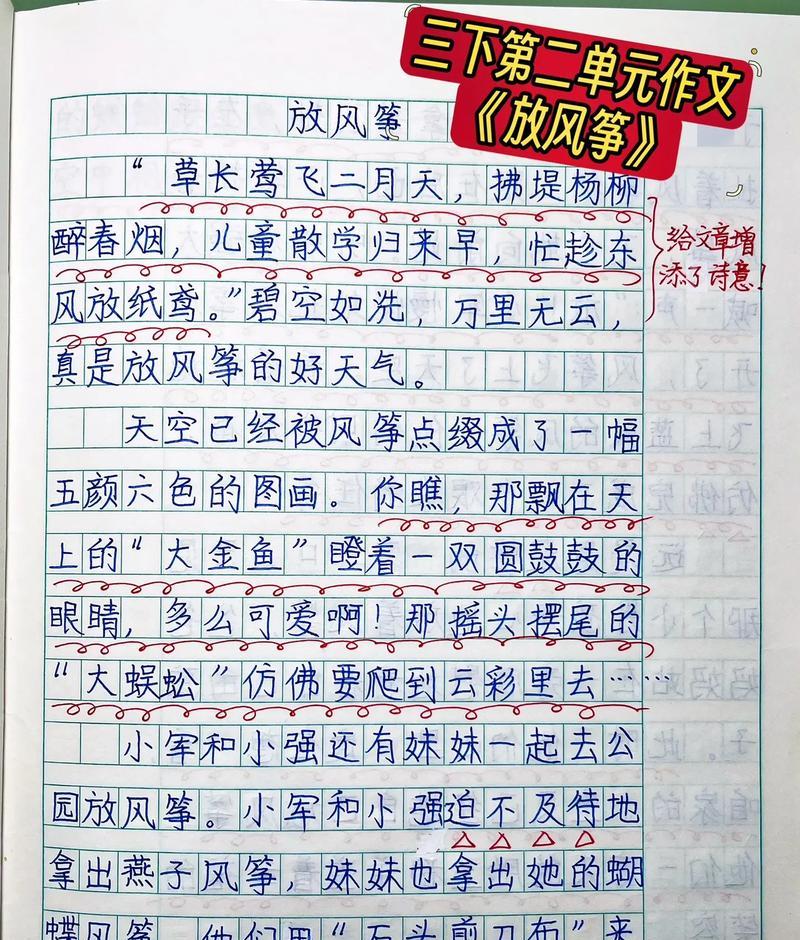 三下第二单元作文
《放风筝》
放风筝
“草长莺飞二月天，拂堤杨柳
醉春烟，儿童散学归来早，忙趁东
风放纸鸢。”碧空如洗，万里无云，
真是放风筝的好天气。
给文章增
添了诗意！
天空已经被风筝点缀成了一幅
五颜六色的图画。你瞧，那飘在天
上的“大金鱼”瞪着一双圆鼓鼓的
眼睛，多么可爱啊！那摇头摆尾的
“大蜈蚣”仿佛要爬到云彩里去……
小军和小强还有妹妹一起去公
园放风筝。小军和小强迫不及待地
拿出燕子风筝，妹妹也拿出她的蝴
蝶风筝。他们用“石头剪刀布”来